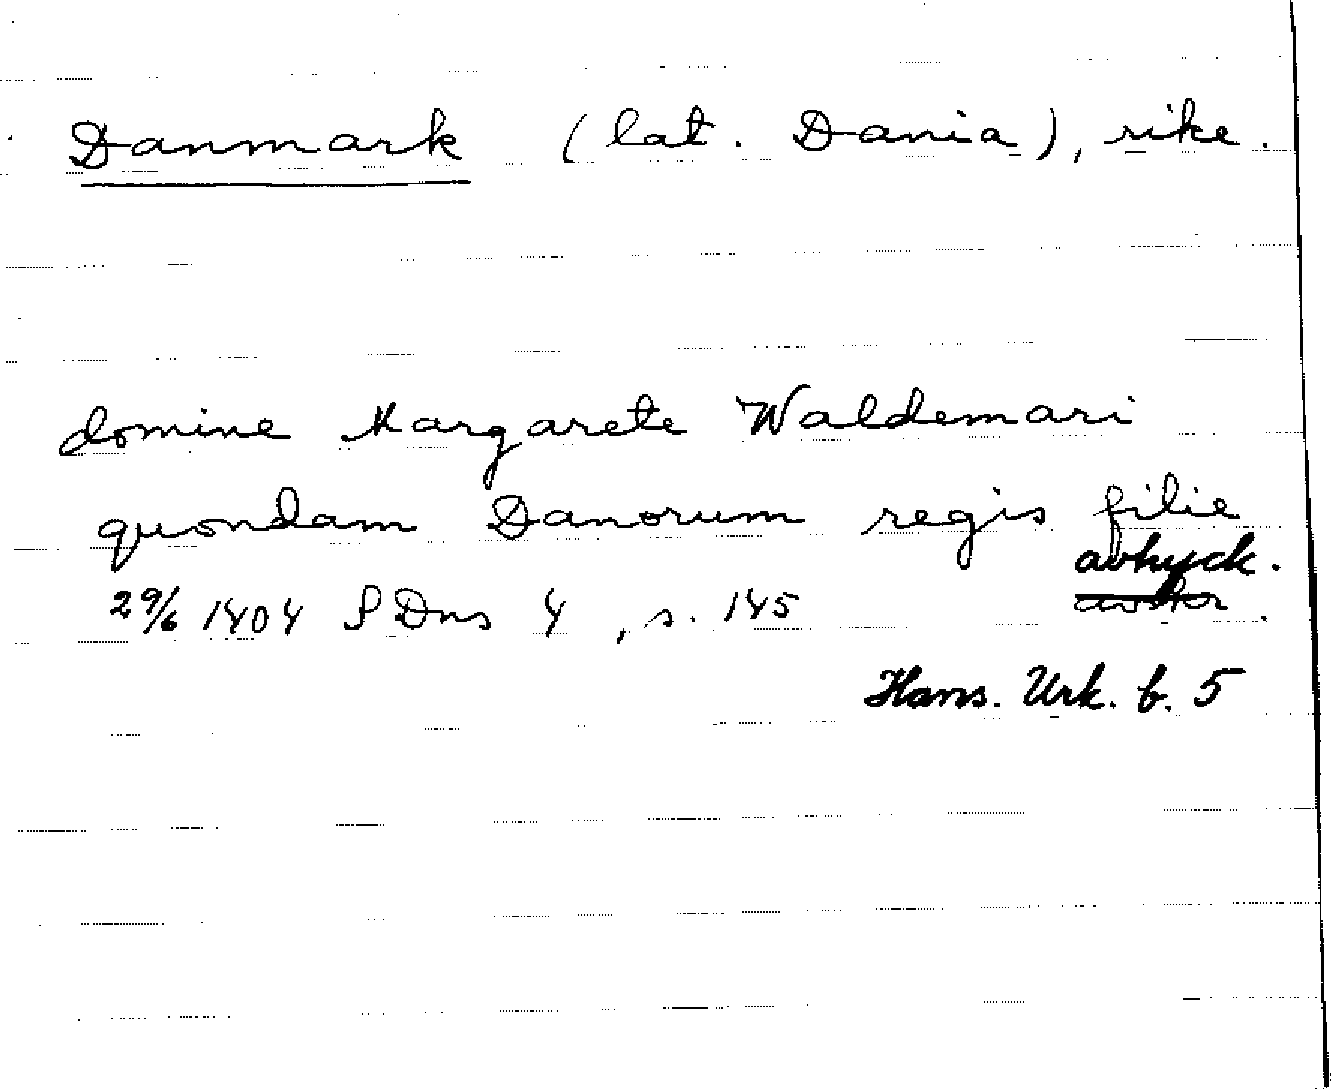 Danmark (lat. Dania), rike.
domine Margarete Waldemari
quondam Danorum regis filie
avtryck.
29/6 1404 SDns 4, s. 145
Hans. Urk. b. 5